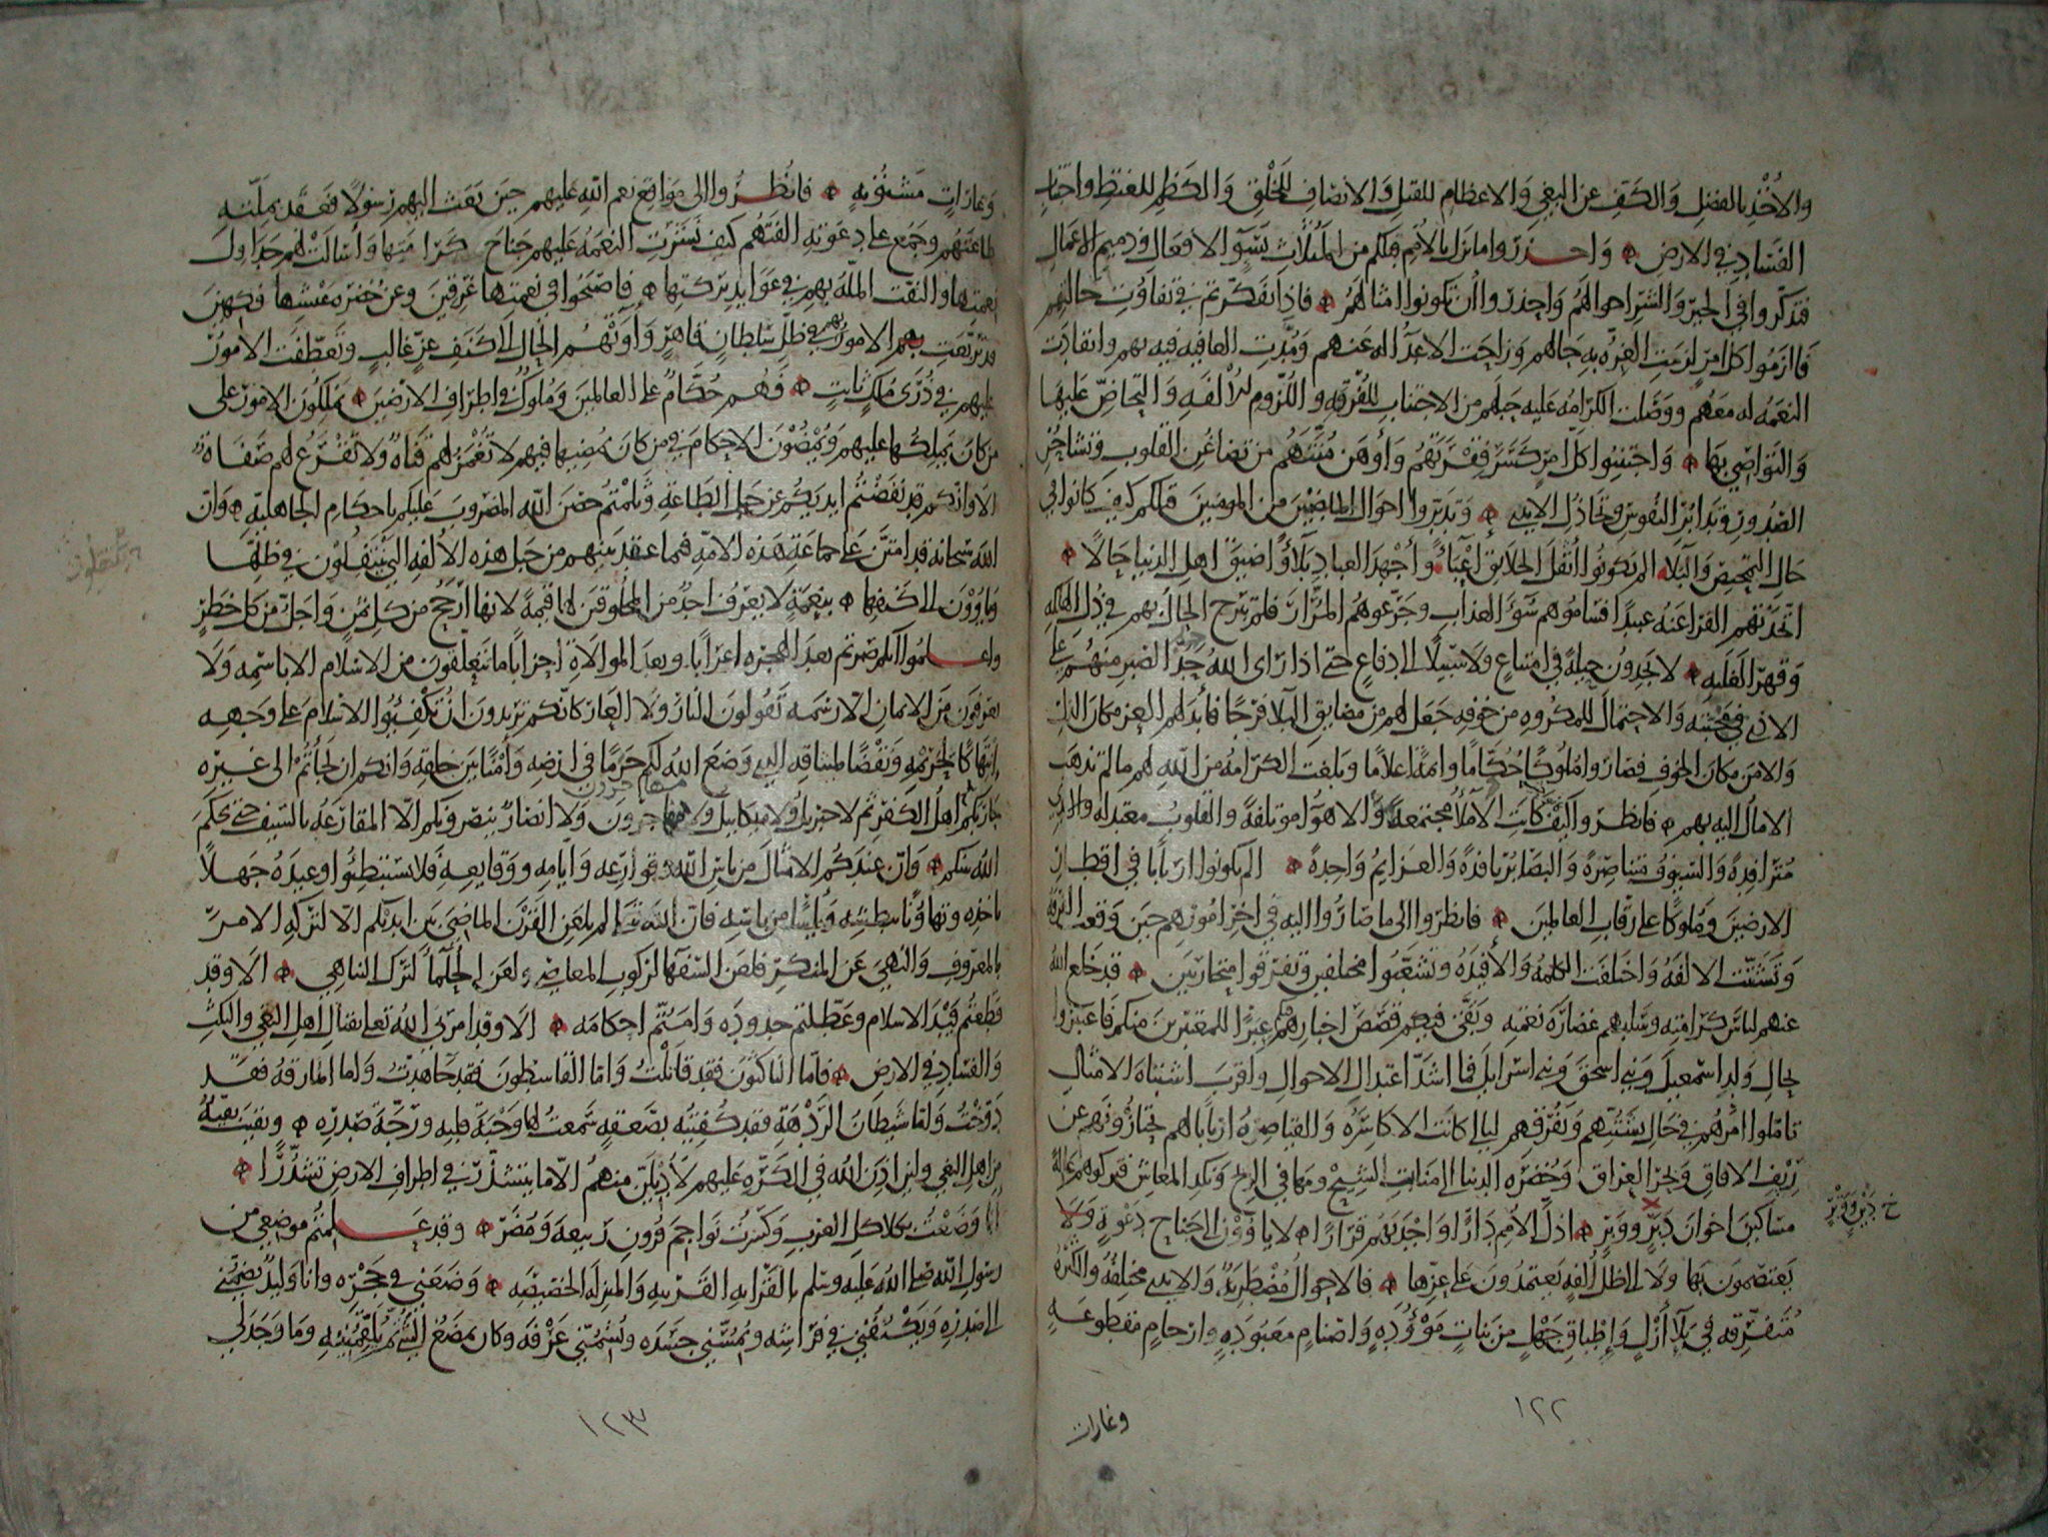 والأخذ بالفضل والكف عن البغي والاعظام للقتل والانصاف للخلق والكظم للغيظ واجتناب
الفساد في الارض واحذروا ما نزل بالأمم قبلكم من المثلات بسوء الافعال وذميم الاعمال
فتذكروا في الخير والشر احوالهم واحذروا أن تكونوا امثالهم فاذا تفكرتم في تفاوت حاليهم
فالزموا كل امر لزمت العزة به حالهم وزاحت الاعداء له عنهم ومدت العافيه فيه بهم وانقادت
النعمة له معهم ووصلت الكرامه عليه حبلهم من الاجتناب للفرقه واللزوم للألفه والتحاض عليها
والتواصي بها واجتنبوا كل امر كسر فقرتهم واوهن منتهم من تضاغن القلوب وتشاحن
الصدور وتدابر النفوس وتخاذل الايدي وتدبروا احوال الماضين من المومنين قبلكم كيف كانوا في
حال التمحيص والبلاء الم يكونوا أثقل الخلايق اعباء وأجهد العباد بلاء واضيق اهل الدنيا حالا
اتخذتهم الفراعنه عبيدا فساموهم سوء العذاب وجرعوهم المرار فلم تبرح الحال بهم في ذل الهلكه
وقهر الغلبه لا يجدون حيلة في امتناع ولا سبيلا الى دفاع حتى اذا راى الله جد الصبر منهم على
الاذى في محبته والاحتمال للمكروه من خوفه جعل لهم من مضايق البلا فرجا فأبدلهم العز مكان الذل
والامن مكان الخوف فصاروا ملوكا حكاما وايمة اعلاما وبلغت الكرامة من الله لهم مالم تذهب
الامال اليه بهم فانظروا كيف كانت الاملاء مجتمعة والاهواء موتلفة والقلوب معتدله والايدي
مترادفة والسيوف متناصرة والبصائر نافذة والعزايم واحدة الم يكونوا اربابا في اقطار
الارضين وملوكا على رقاب العالمين فانظروا الى ما صاروا اليه في اخر امورهم حين وقعت الفرقه
وتشتتت الالفه واختلفت الكلمه والأفيده وتشعبوا مختلفين وتفرقوا متحاربين قد خلع الله
عنهم لباس كرامته وسلبهم غضارة نعمته وبقى قصص اخبارهم فيكم عبرا للمعتبرين منكم فاعتبروا
بحال ولد اسمعيل وبني اسحق وبني اسرايل فما اشد اعتدال الاحوال واقرب اشتباه الامثال
تاملوا امرهم في حال تشتتهم وتفرقهم ليالي كانت الاكاسره والقياصرة اربابا لهم يحتازونهم عن
ريف الافاق وبحر العراق وخضرة الدنيا الى منابت الشيح ومهافي الريح ونكد المعاش فتركوهم عالة
مساكين اخوان دبر ووبر اذل الأمم دارا واجدبهم قرارا لا ياوون الى جناح دعوة
يعتصمون بها ولا الى ظل الفة يعتمدون على عزها فالاحوال مضطربة والايدي مختلفة والكثرة
متفرقه في بلاء أزل وإطباق جهل من بنات موؤدة واصنام معبودة وارحام مقطوعة
خ دَبَرٍ ووَبَرٍ
١٢٢
وغارات
وغارات مشنونة فانظروا الى مواقع نعم الله عليهم حين بعث اليهم رسولا فعقد بملته
طاعتهم وجمع على دعوته الفتهم كيف نشرت النعمة عليهم جناح كرامتها وأسالت لهم جداول
نعيمها والتفت الملة بهم في عوايد بركتها فاصبحوا في نعمتها غرقين وعن خضرة عيشها فكهين
قد تربعت بهم الامور في ظل سلطان قاهر واوتهم الحال الى كنف عز غالب وتعطفت الامور
عليهم في ذرى ملك ثابت فهم حكام على العالمين وملوك في اطراف الارضين يملكون الامور على
من كان يملكها عليهم ويمضون الاحكام في من كان يمضيها فيهم لا تغمز لهم قناة ولا تقرع لهم صفاة
الا وانكم قد نفضتم ايديكم عن حبل الطاعة وثلمتم حصن الله المضروب عليكم باحكام الجاهلية وان
الله سبحانه قد امتن على جماعة هذه الامة فيما عقد بينهم من حبل هذه الالفه التي ينتقلون في ظلها
وياوون الى كنفها بنعمة لا يعرف احد من المخلوقين لها قيمة لانها ارجح من كل ثمن واجل من كل خطر
واعلموا انكم صرتم بعد الهجرة اعرابا وبعد الموالاة احزابا ما تتعلقون من الاسلام الا باسمه ولا
تعرفون من الايمان الا رسمه تقولون النار ولا العار كانكم تريدون ان تكفيوا الاسلام على وجهه
انتهاكا لحريمه ونقضا لميثاقه الذي وضع الله لكم حرما في ارضه وأمنا بين خلقه وانكم ان لجأتم الى غيره
حاربكم اهل الكفر ثم لا جبريل ولا ميكاييل ولا مهاجرون ولا انصار ينصرونكم الا المقارعه بالسيف حتى يحكم
الله بينكم وان عندكم الامثال من باس الله وقوارعه وايامه ووقايعه فلا تستبطئوا وعيده جهلا
باخذه وتهاونا ببطشه ويأسا من باسه فان الله تعالى لم يلعن القرن الماضي بين ايديكم الا لتركهم الامر
بالمعروف والنهي عن المنكر فلعن السفهاء لركوب المعاصي والحلماء لترك التناهي الا وقد
قطعتم قيد الاسلام وعطلتم حدوده وامتم احكامه الا وقد امرني الله تعالى بقتال اهل البغي والنكث
والفساد في الارض فاما الناكثون فقد قاتلت واما القاسطون فقد جاهدت واما المارقة فقد
دوخت واما شيطان الردهة فقد كفيته بصعقة سمعت لها وجبة قلبه ورجة صدره وبقيت بقية
من اهل البغي ولئن اذن الله في الكرة عليهم لأديلن منهم الا ما يتشذر في اطراف الارض تشذرا
انا وضعت بكلاكل العرب وكسرت نواجم قرون ربيعة ومضر وقد علمتم موضعي من
رسول الله صلى الله عليه وسلم بالقرابه القريبه والمنزلة الخصيصه وضعني في حجره وانا وليد يضمني
الى صدره ويكنفني في فراشه ويمسني جسده ويشمني عرفه وكان يمضغ الشيء ثم يلقمنيه وما وجد لي
١٢٣